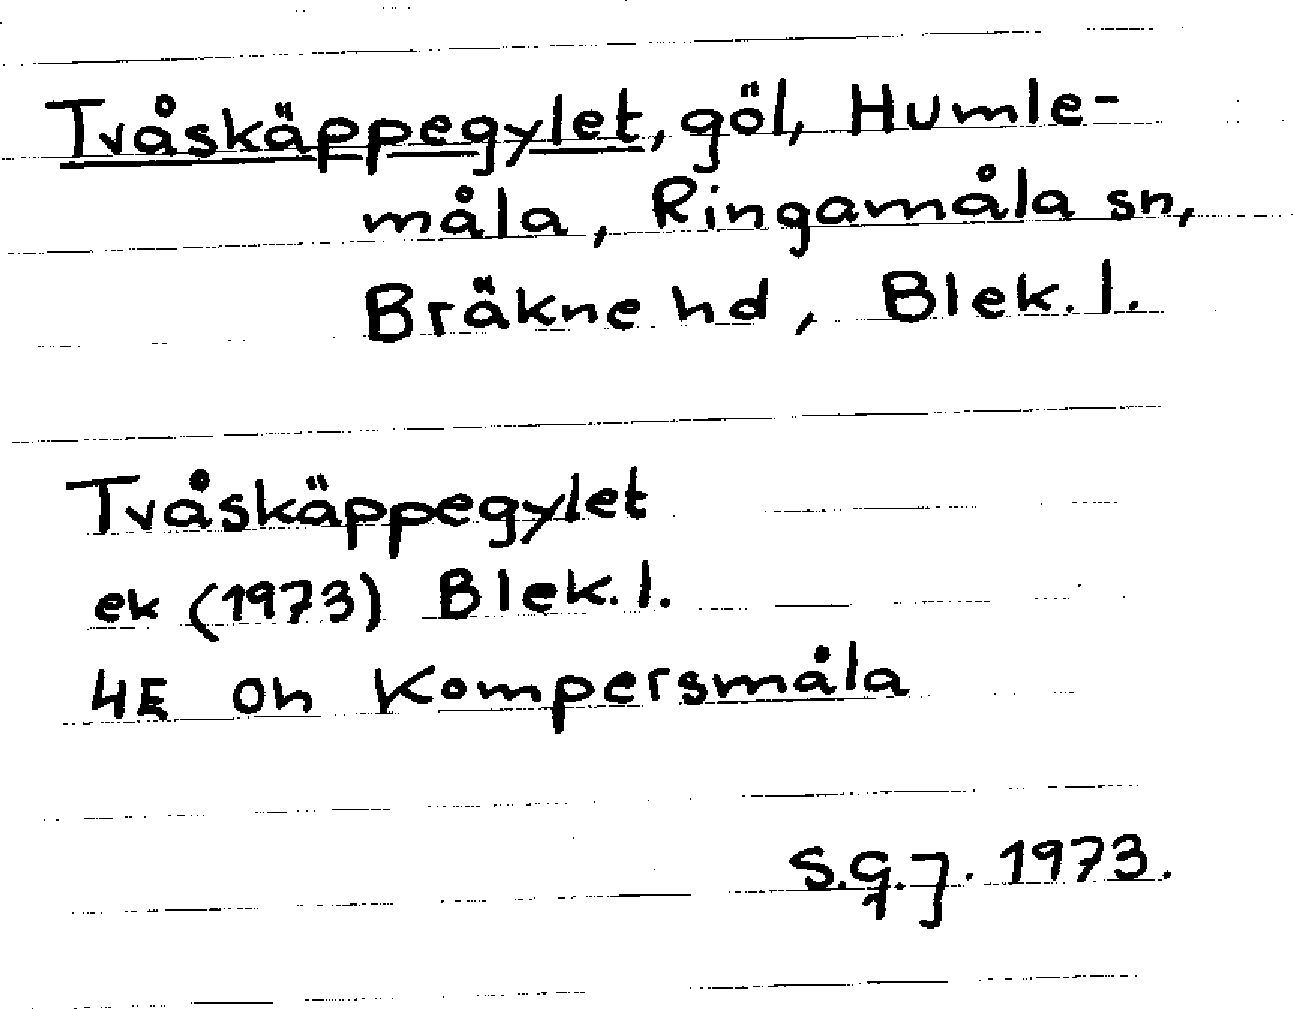 Tvåskäppegylet, göl, Humle-
måla, Ringamåla sn,
Bräkne hd, Blek. l.
Tvåskäppegylet
ek (1973) Blek. l.
4E 0h Kompersmåla
S.G.J. 1973.